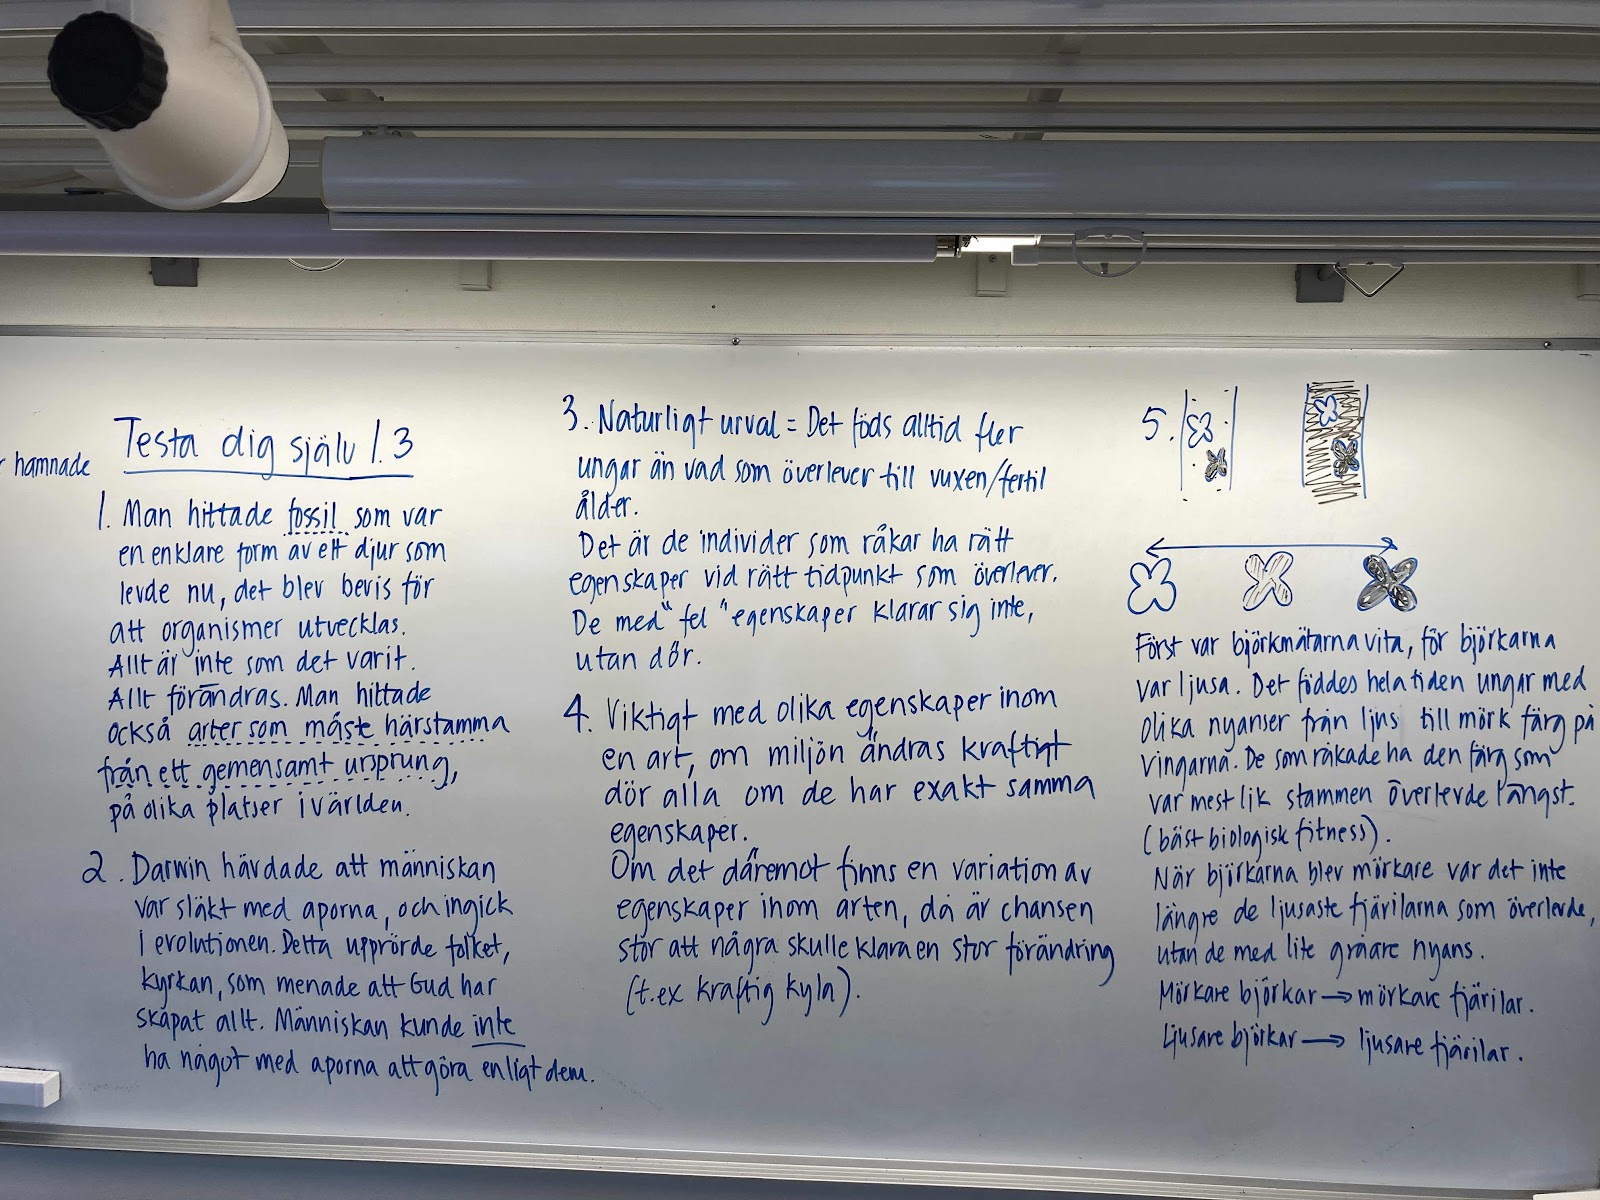 hamnade
Testa dig själv 1.3
1. Man hittade fossil som var
en enklare form av ett djur som
levde nu, det blev bevis för
att organismer utvecklas.
Allt är inte som det varit.
Allt förändras. Man hittade
också arter som måste härstamma
från ett gemensamt ursprung,
på olika platser i världen.
2. Darwin hävdade att människan
var släkt med aporna, och ingick
i evolutionen. Detta upprörde folket,
kyrkan, som menade att Gud har
skapat allt. Människan kunde inte
ha något med aporna att göra enligt dem.
3. Naturligt urval = Det föds alltid fler
ungar än vad som överlever till vuxen/fertil
ålder.
Det är de individer som råkar ha rätt
egenskaper vid rätt tidpunkt som överlever.
De med "fel" egenskaper klarar sig inte,
utan dör.
4. Viktigt med olika egenskaper inom
en art, om miljön ändras kraftigt
dör alla om de har exakt samma
egenskaper.
Om det däremot finns en variation av
egenskaper inom arten, då är chansen
stor att några skulle klara en stor förändring
(t.ex kraftig kyla).
5.
Först var björkmätarna vita, för björkarna
var ljusa. Det föddes hela tiden ungar med
olika nyanser från ljus till mörk färg på
vingarna. De som råkade ha den färg som
var mest lik stammen överlevde längst.
(bäst biologisk fitness).
När björkarna blev mörkare var det inte
längre de ljusaste fjärilarna som överlevde,
utan de med lite gråare nyans.
Mörkare björkar → mörkare fjärilar.
Ljusare björkar → ljusare fjärilar.